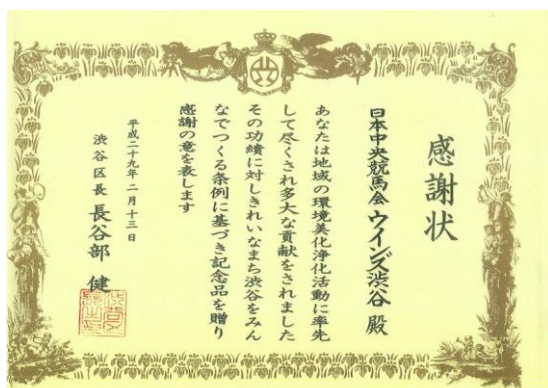 感謝状
日本中央競馬会 ウインズ渋谷 殿
あなたは地域の環境美化浄化活動に率先
して尽くされ多大な貢献をされました
その功績に対しきれいなまち渋谷をみん
なでつくる条例に基づき記念品を贈り
感謝の意を表します
平成二十九年二月十三日
渋谷区長 長谷部 健